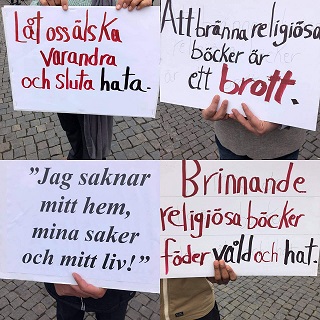 Låt oss älska
varandra
och sluta hata.
Att bränna religiösa
böcker är
ett brott.
"Jag saknar
mitt hem,
mina saker
och mitt liv!"
Brinnande
religiösa böcker
föder våld och hat.